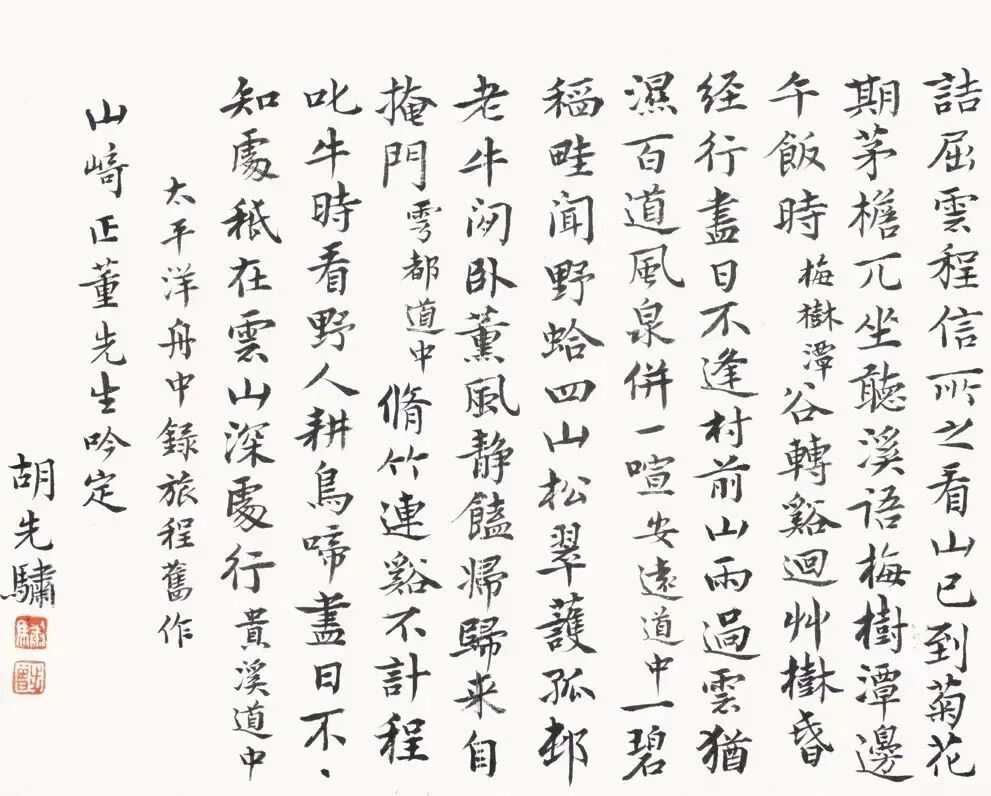 詰屈雲程信所之看山已到菊花
期茅檐兀坐聽溪語梅樹潭邊
午飯時 梅樹潭 谷轉谿迴艸樹昏
経行盡日不逢村前山雨過雲猶
濕百道風泉併一喧 安遠道中 一碧
稻畦闻野蛤四山松翠護孤邨
老牛闲卧薰風静饁婦歸来自
掩門 雩都道中 脩竹連谿不計程
叱牛時看野人耕鳥啼盡日不、
知處秖在雲山深處行 貴溪道中
太平洋舟中錄旅程舊作
山崎正董先生吟定
胡先驌